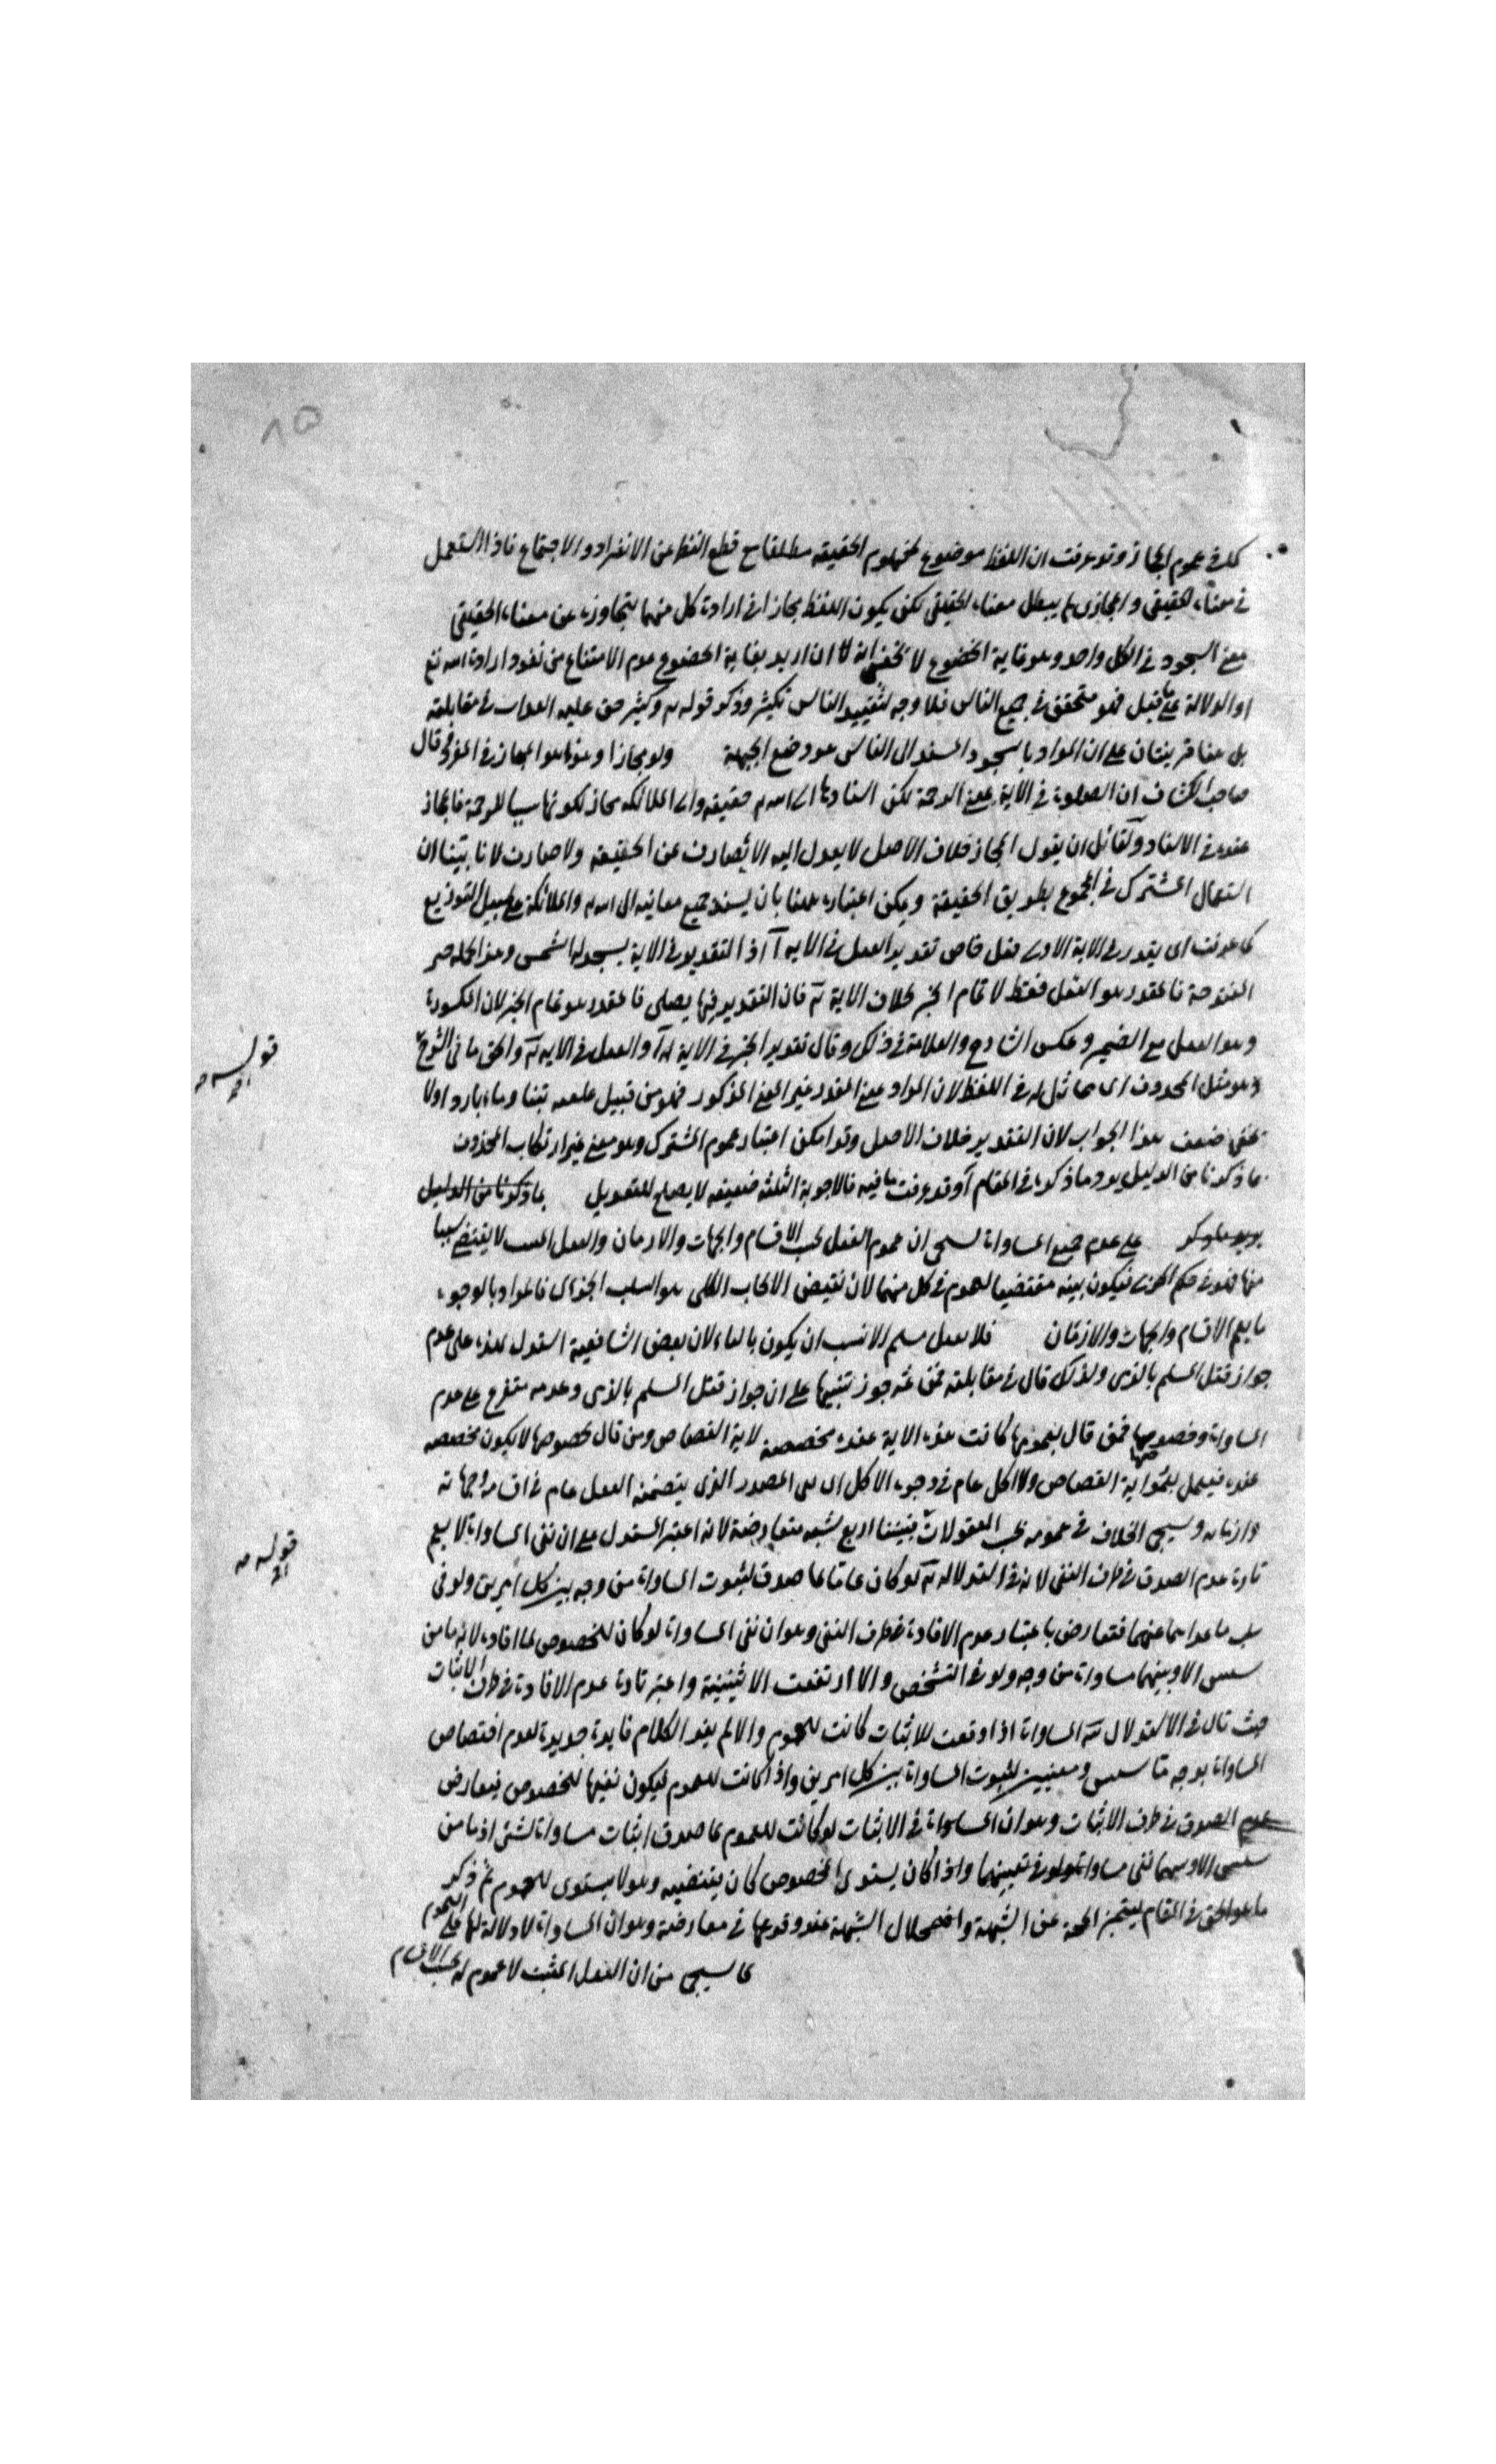 ٨٥
كلا في عموم المجاز وقد عرفت ان اللفظ موضوع لمفهوم الحقيقة مطلقا مع قطع النظر عن الانفراد والاجتماع فاذا استعمل
في معناه الحقيقي والمجازي لم يبطل معناه الحقيقي لكن يكون اللفظ مجازا في ارادة كل منهما لتجاوزه عن معناه الحقيقي
معنى السجود في الكل واحد وهو غاية الخضوع لا يخفى انه ان اريد بغاية الخضوع عدم الامتناع من نفوذ ارادة الله تع
او الدلالة على ما قبل فهو متحقق في جميع الناس فلا وجه لتقييد الناس بكثير وذكر قوله تع وكثير حق عليه العذاب في مقابلته
بل هنا قرينتان على ان المراد بالسجود المسند الى الناس هو وضع الجبهة ولو مجازا وهذا هو المجاز في المفرد قال
صاحب الكشاف ان الصلوة في الاية بمعنى الرحمة لكن اسنادها الى الله تع حقيقة والى الملائكة مجاز لكونها سببا للرحمة فالمجاز
عنده في الاسناد ولقائل ان يقول المجاز خلاف الاصل لا يعدل اليه الا لصارف عن الحقيقة ولا صارف لانا بينا ان
استعمال المشترك في المجموع بطريق الحقيقة ويمكن اعتباره ههنا بان يسند جميع معانيه الى الله تع والملائكة على سبيل التوزيع
كما عرفت اي يقدر في الاية الاولى فعل خاص تقدير الفعل في الاية آ اذ التقدير في الاية يسجد له الشمس وهذا
المفتوحة فالمقدر هو الفعل فقط لا تمام الخبر بخلاف الاية فان التقدير فيها يصلي فالمقدر هو تمام الخبر لان المكسورة
وهو الفعل مع الضمير وعكس الشارح والعلامة في ذلك وقال تقدير الخبر في الاية آ والفعل في الاية والحق ما في الشرح
وهو مثل المحذوف اي مماثل له في اللفظ لان المراد بمعنى المقدر غير المعنى المذكور فهو من قبيل علفته تبنا وماء باردا ولا
يخفى ضعف هذا الجواب لان التقدير خلاف الاصل وقد امكن اعتبار عموم المشترك وهو معنى غير ارتكاب المحذوف
بما ذكرنا من الدليل يرد ما ذكره في المقام آ وقد عرفت ما فيه فالاجوبة الثلثة ضعيفة لا يصلح للتعويل بما ذكرنا من الدليل
على عدم جميع المساواة ان عموم الفعل بحسب الاقسام والجهات والازمان والفعل المثبت لا يقتضي شيئا
منها فهو في حكم الجزئي فيكون نفيه مقتضيا لعموم في كل منها لان نقيض الايجاب الكلي هو السلب الجزئي فالمراد بالوجوه
ما يعم الاقسام والجهات والازمان فلا يقتل مسلم الانسب ان يكون بالفاء لان بعض الشافعية استدل بهذه على عدم
جواز قتل المسلم بالذمي ولذلك قال في مقابلته فمن ثمه جوز تنبيها على ان جواز قتل المسلم بالذمي وعدمه متفرع على عدم
المساواة وخصوصها فمن قال بعمومها كانت هذه الاية عنده مخصصة لاية القصاص ومن قال بخصوصها لا يكون مخصصة
عنده فيعمل بعموم اية القصاص ولا اكل عام في وجوه الاكل اي المصدر الذي يتضمنه الفعل عام في اقسامه وجهاته
وازمانه وسيجئ الخلاف في عمومه بحسب المفعولات فنشأ اربع شبه متعارضة لانه اعتبر المستدل على ان نفي المساواة لا يعم
تارة عدم الصدق في طرف النفي لانه في استدلاله لو كان عاما لما صدق لثبوت المساواة من وجه بين كل امرين ولو في
سلب ما عداهما عنهما فتعارض باعتبار عدم الافادة في طرف النفي وهو ان نفي المساواة لو كان للخصوص لما افاد لانه ما من
شيئين الا وبينهما مساواة من وجه ولو في التشخص والا ارتفعت الاثنينية واعتبر تارة عدم الافادة في طرف الاثبات
حيث قال في الاستدلال المساواة اذا وقعت للاثبات كانت للعموم والا لم يفد الكلام فايدة جديدة لعدم اختصاص
المساواة بوجه ما شيئين ومعينين لثبوت المساواة بين كل امرين واذا كانت للعموم ليكون نفيها للخصوص فيعارض
عدم الصدق في طرف الاثبات وهو ان المساواة في الاثبات لو كانت للعموم لما صدق اثبات مساواة لشئ اذ ما من
شيئين الا وبينهما نفي مساواة ولو في تعينهما واذا كان يستوي للخصوص كان نقيضه وهو لا يستوي للعموم ثم ذكر
ما هو الحق في المقام ليتميز الحجة عن الشبهة واضمحلال الشبهة عند وقوعها في معارضة وهو ان المساواة لا دلالة لها على العموم
لما سيجئ من ان الفعل المثبت لا عموم له بحسب الاقسام
قوله
قوله